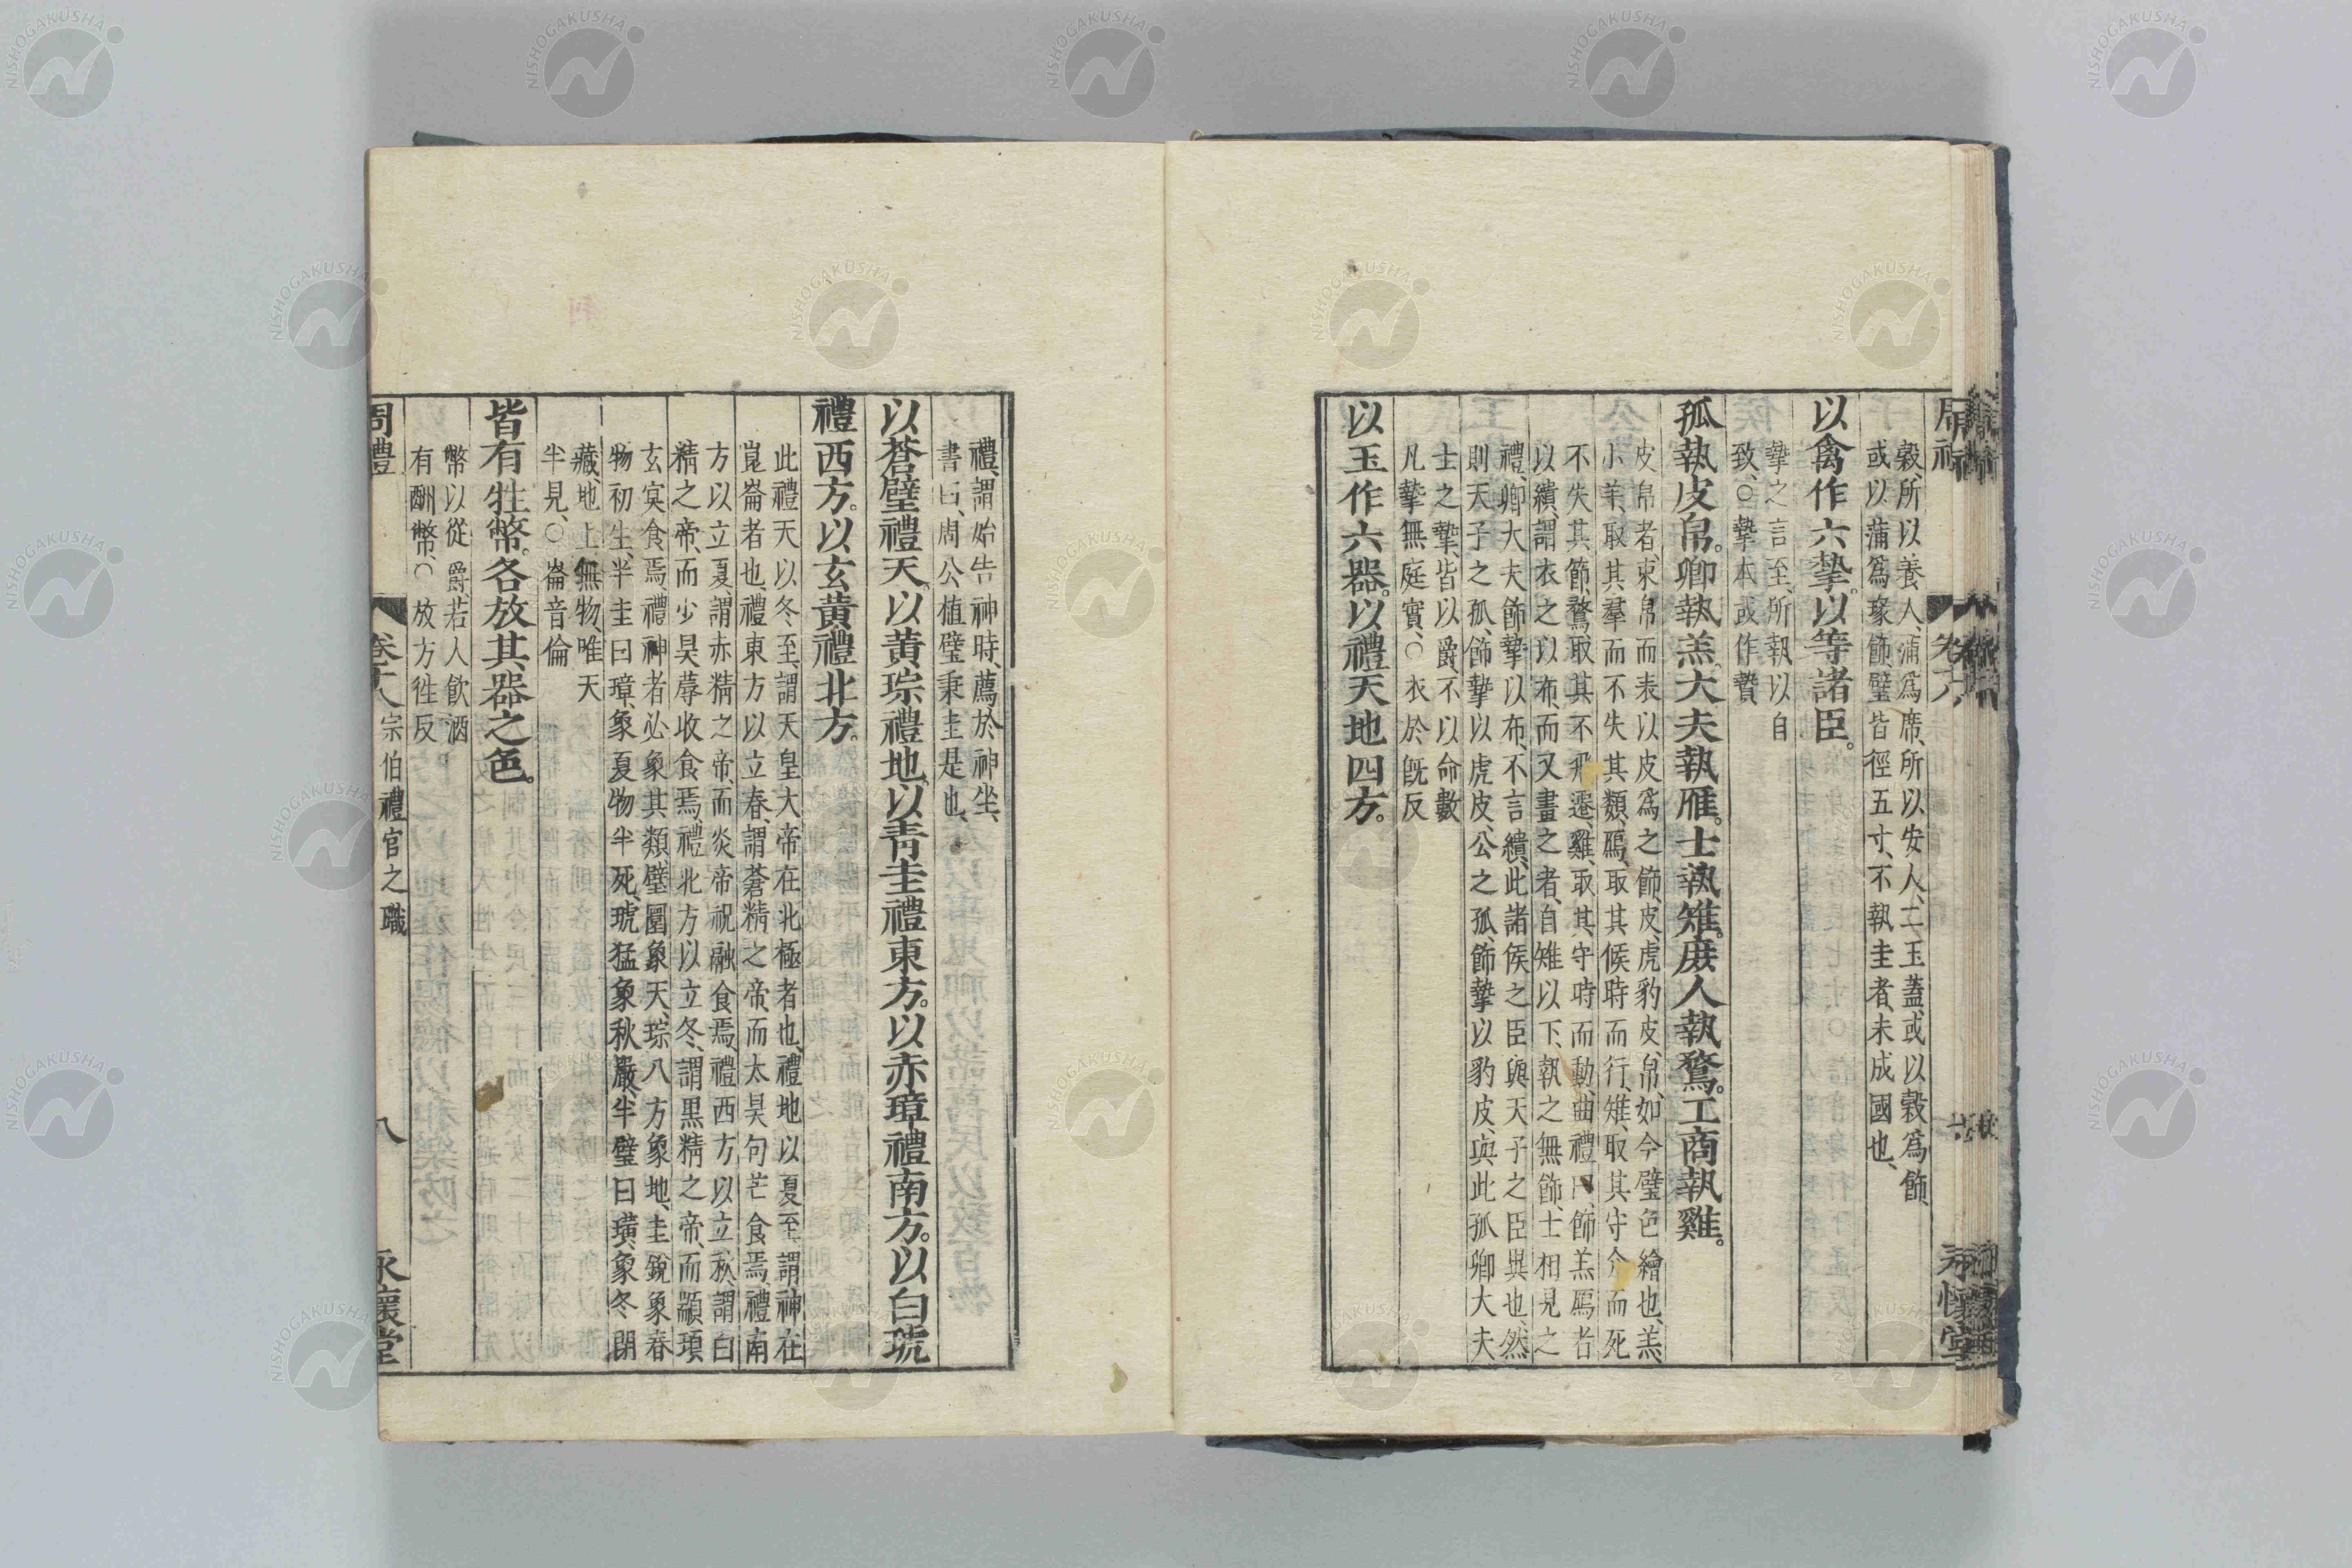 穀所以養人、蒲爲席、所以安人、二玉蓋或以穀爲飾、
或以蒲爲瑑飾、璧皆徑五寸、不執圭者、未成國也、
以禽作六摯。以等諸臣。
摯之言至、所執以自
致、○摯本或作贄
孤執皮帛。卿執羔。大夫執雁。士執雉。庶人執鶩。工商執雞。
皮帛者、束帛而表以皮爲之飾、皮、虎豹皮、帛、如今璧色繒也、羔、
小羊、取其羣而不失其類、鴈、取其候時而行、雉、取其守介而死
不失其節、鶩、取其不飛遷、雞、取其守時而動、曲禮曰、飾羔鴈者
以繢、謂衣之以布、而又畫之者、自雉以下、執之無飾、士相見之
禮、卿大夫飾摯以布、不言繢、此諸侯之臣與天子之臣異也、然
則天子之孤、飾摯以虎皮、公之孤、飾摯以豹皮、與此孤卿大夫、
士之摯、皆以爵不以命數
凡摯無庭實、○衣於旣反
以玉作六器。以禮天地四方。
禮、謂始告神時、薦於神坐、
書曰、周公植璧秉圭是也、
以蒼璧禮天。以黃琮禮地。以靑圭禮東方。以赤璋禮南方。以白琥
禮西方。以玄黃禮北方。
此禮天以冬至、謂天皇大帝在北極者也、禮地以夏至、謂神在
崑崙者也、禮東方以立春、謂蒼精之帝、而太昊句芒食焉、禮南
方以立夏、謂赤精之帝、而炎帝祝融食焉、禮西方以立秋、謂白
精之帝、而少昊蓐收食焉、禮北方以立冬、謂黑精之帝、而顓頊
玄冥食焉、禮神者必象其類、璧圜象天、琮八方象地、圭銳象春
物初生、半圭曰璋、象夏物半死、琥猛象秋嚴、半璧曰璜、象冬閉
藏、地上無物、唯天
半見、○崙音倫
皆有牲幣。各放其器之色。
幣以從爵、若人飮酒
有酬幣、○放方徃反
周禮 卷十八 宗伯禮官之職 八 永懷堂